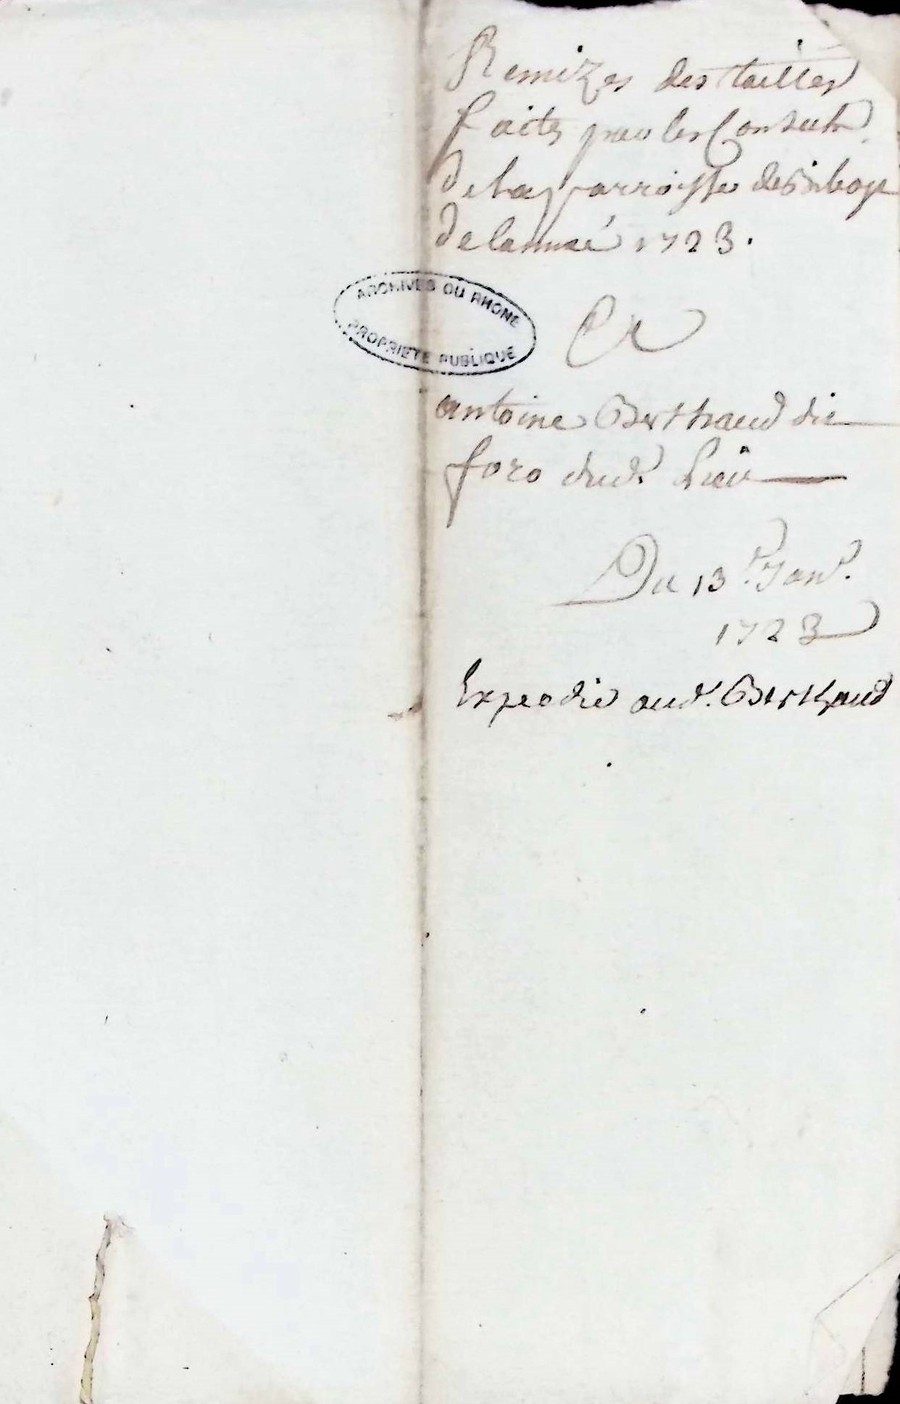 Remizes des tailles
faites par les Consuls
de la parroisse de
de lanneé 1723.
ARCHIVES DU RHONE
PROPRIETE PUBLIQUE
A
antoine Berthaud dit
foro dud. lieu
Du 13e. Janv.
1723
Expedié aud. Berthaud